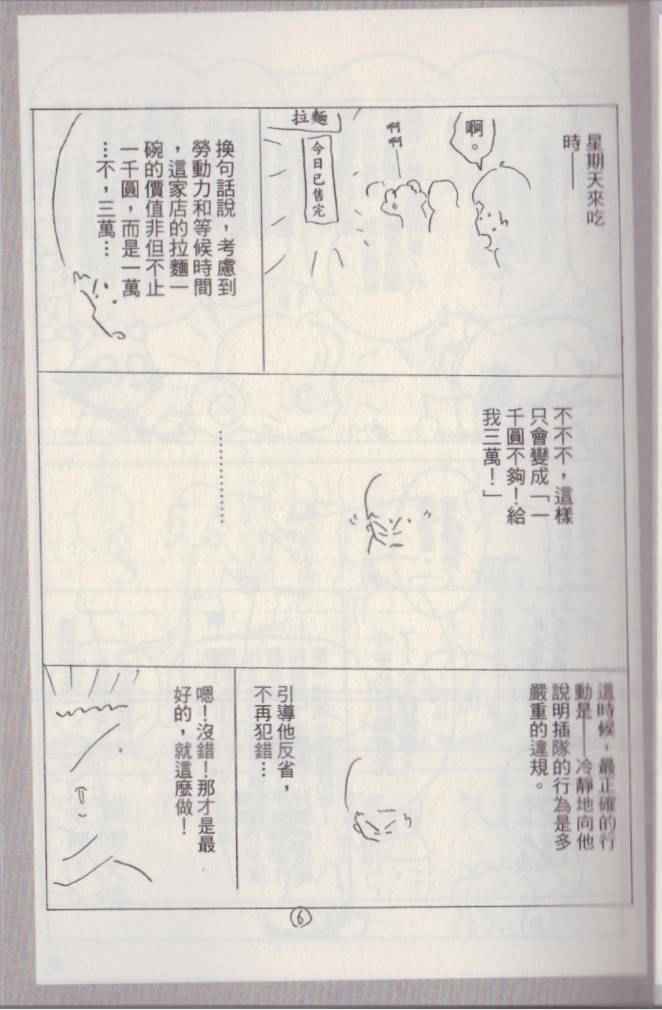 星期天來吃
時——
啊。
啊
啊——
拉麵
今日已售完
換句話說，考慮到
勞動力和等候時間
，這家店的拉麵一
碗的價值非但不止
一千圓，而是一萬
…不，三萬…
不不不，這樣
只會變成「一
千圓不夠！給
我三萬！」
………………
這時候，最正確的行
動是——冷靜地向他
說明插隊的行為是多
嚴重的違規。
引導他反省，
不再犯錯…
嗯！沒錯！那才是最
好的，就這麼做！
6